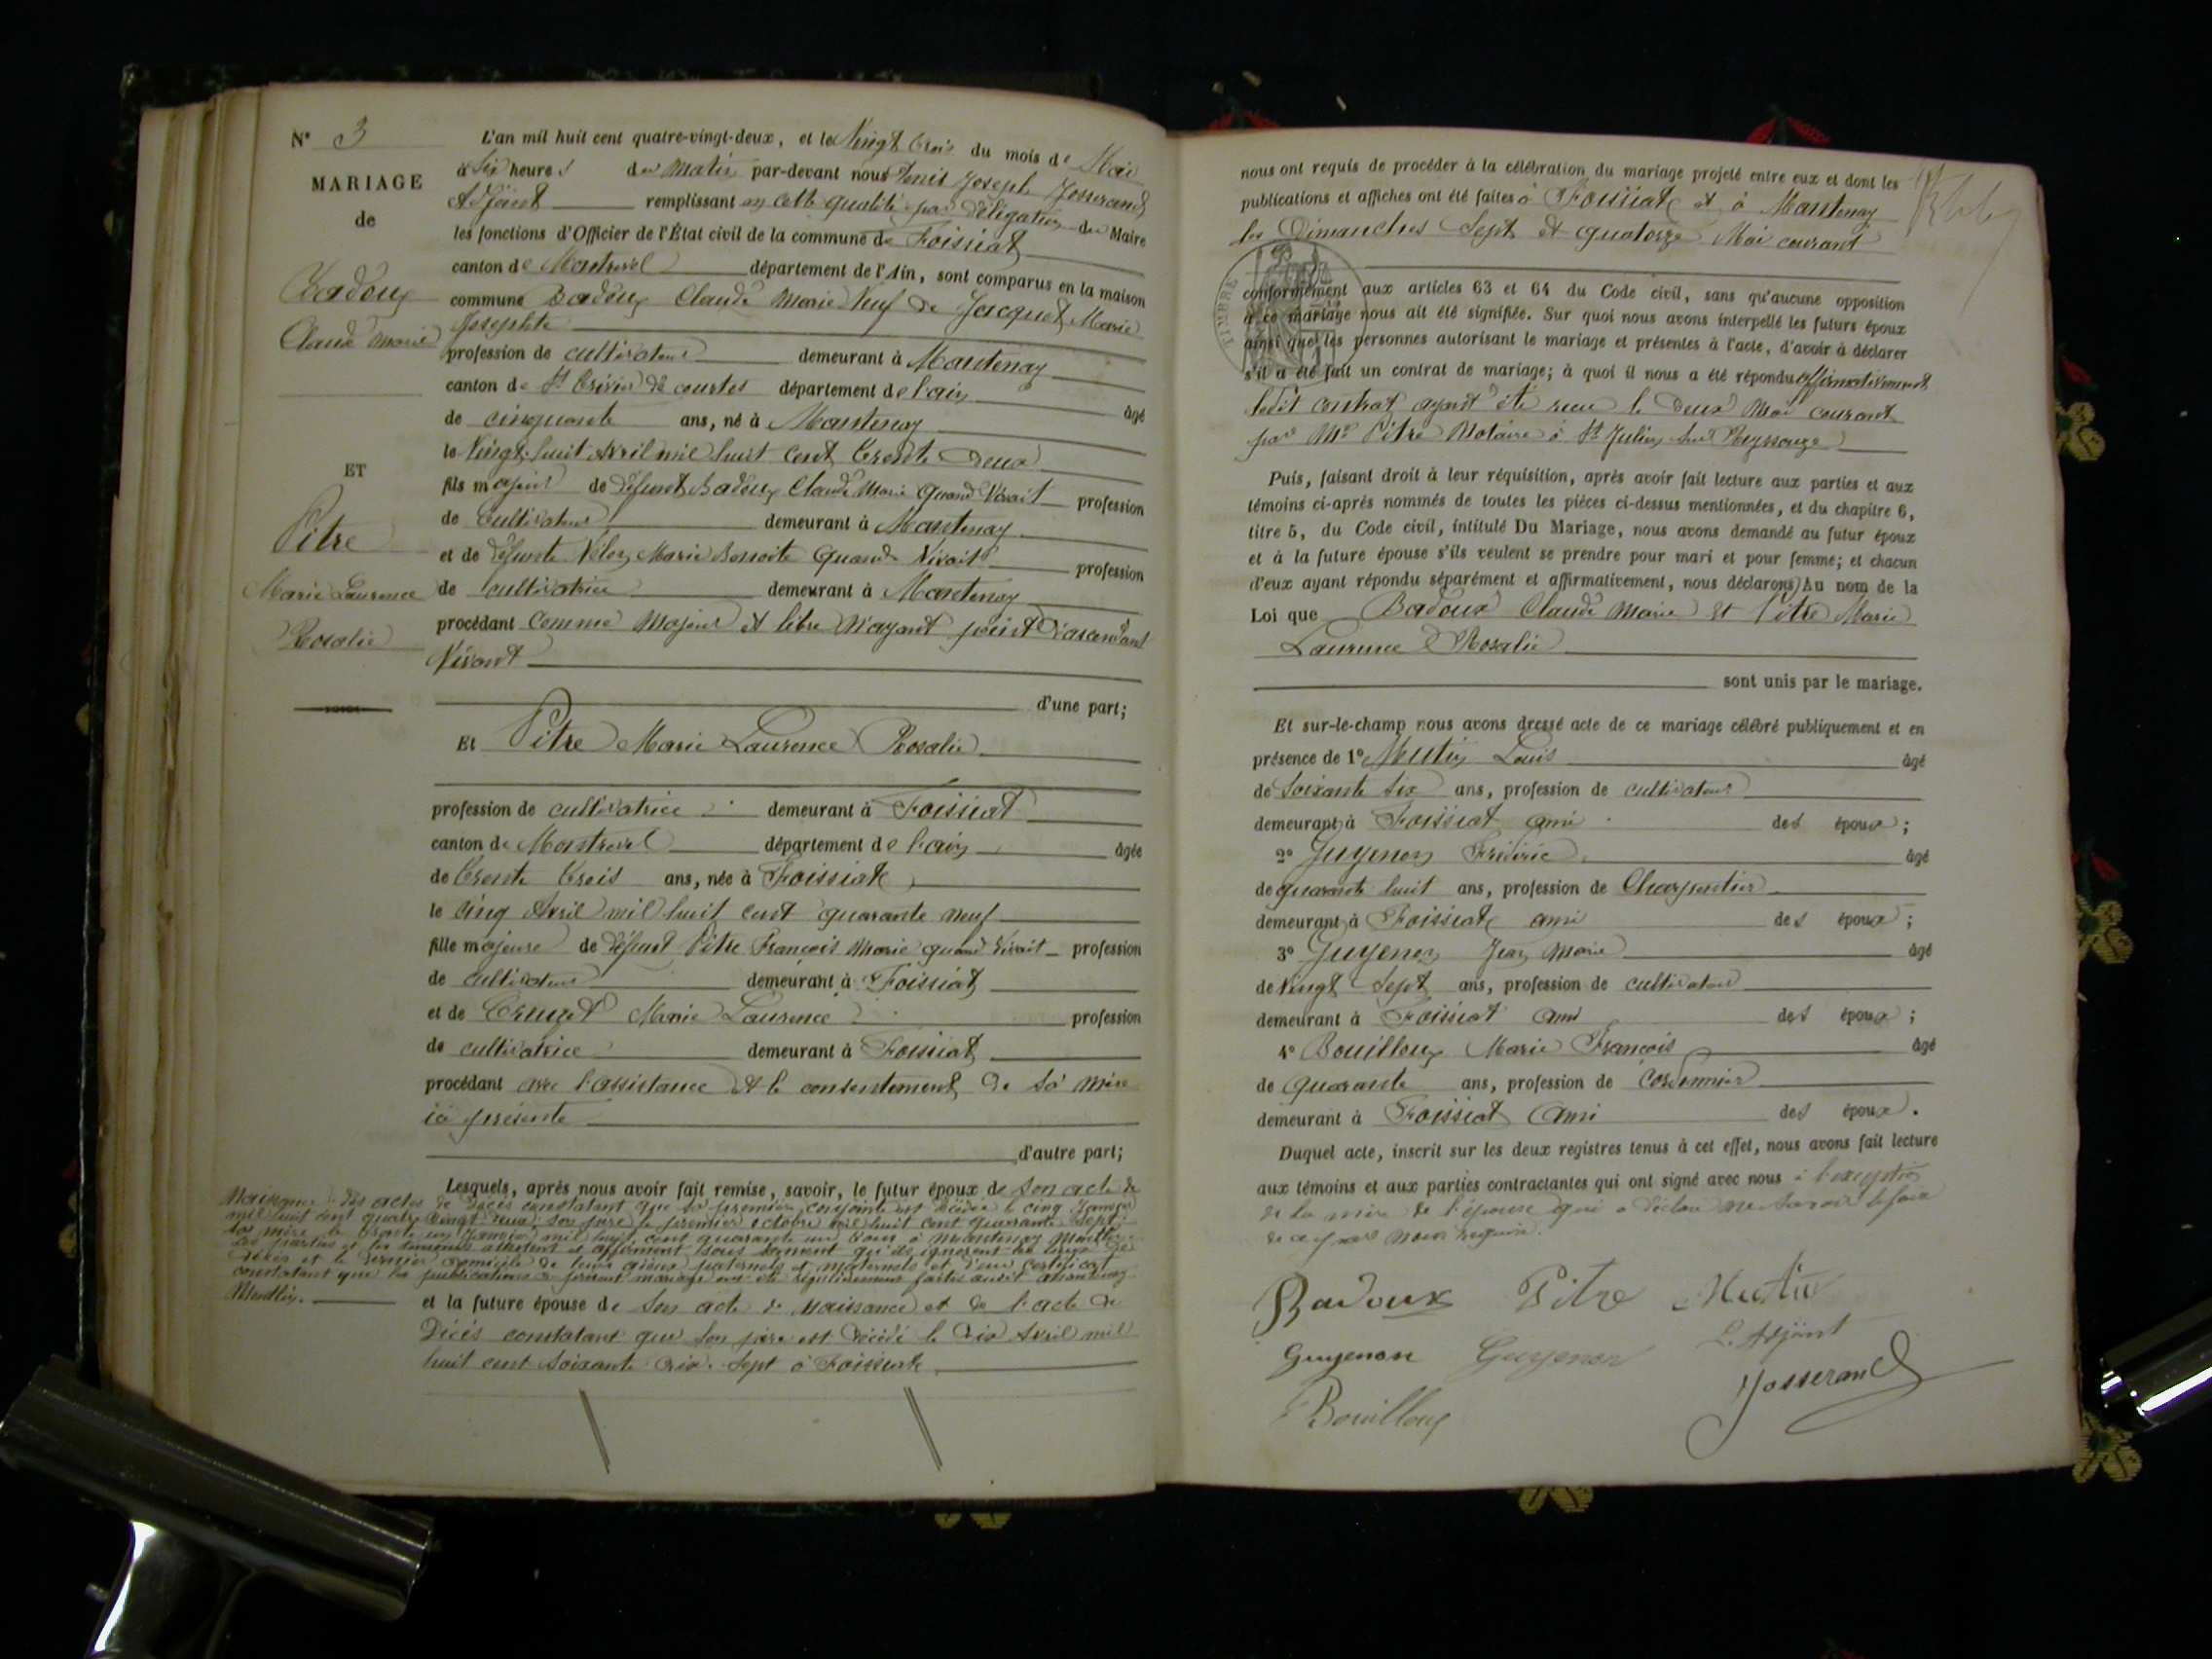 N° 3
MARIAGE
de
Badoux
Claude Marie
ET
Pitre
Marie Laurence
Rosalie
L'an mil huit cent quatre-vingt-deux, et le Vingt trois du mois de Mai
à Six heures du matin par-devant nous Denis Joseph Josserand
Adjoint remplissant en cette qualité par délégation du Maire
les fonctions d'Officier de l'État civil de la commune de Foissiat
canton de Montrevel département de l'Ain, sont comparus en la maison
commune Badoux Claude Marie Veuf de Jacquet Marie
Josephte
profession de cultivateur demeurant à Mantenay
canton de St Trivier de courtes département de l'ain âgé
de cinquante ans, né à Mantenay
le Vingt huit Avril mil huit cent trente deux
fils majeur de défunt Badoux Claude Marie quand Vivait profession
de cultivateur demeurant à Mantenay
et de défunte Marie Benoite quand Vivait profession
de cultivatrice demeurant à Mantenay
procédant comme Majeur et libre N'ayant point d'ascendant
Vivant
d'une part;
Et Pitre Marie Laurence Rosalie
profession de cultivatrice demeurant à Foissiat
canton de Montrevel département de l'ain âgée
de trente trois ans, née à Foissiat
le cinq Avril mil huit cent quarante neuf
fille majeure de défunt Pitre François Marie quand Vivait profession
de cultivateur demeurant à Foissiat
et de Marie Laurence profession
de cultivatrice demeurant à Foissiat
procédant avec l'assistance et le consentement de sa mère
ici présente
d'autre part;
Lesquels, après nous avoir fait remise, savoir, le futur époux de son acte de
Naissance des actes de décès constatant que sa première conjointe est décédée le cinq Janvier
mil huit cent quatre vingt deux, son père le premier octobre mil huit cent quarante sept
sa mère le trente un Janvier mil huit cent quarante un tous à Mantenay Montlin
Les parties et les témoins attestent et affirment sous serment qu'ils ignorent le lieu de
décès et le dernier domicile de leurs aïeux paternels et maternels et d'un certificat
constatant que les publications du présent mariage ont été régulièrement faites audit Mantenay
Montlin.
et la future épouse de son acte de Naissance et de l'acte de
Décès constatant que son père est décédé le dix Avril mil
huit cent soixante dix-sept à Foissiat
nous ont requis de procéder à la célébration du mariage projeté entre eux et dont les
publications et affiches ont été faites à Foissiat et à Mantenay
les Dimanches Sept et quatorze Mai courant
TIMBRE
conformément aux articles 63 et 64 du Code civil, sans qu'aucune opposition
à ce mariage nous ait été signifiée. Sur quoi nous avons interpellé les futurs époux
ainsi que les personnes autorisant le mariage et présentes à l'acte, d'avoir à déclarer
s'il a été fait un contrat de mariage; à quoi il nous a été répondu affirmativement
ledit contrat ayant été reçu le deux Mai courant
par Me Pitre Notaire à St Julien sur Reyssouze
Puis, faisant droit à leur réquisition, après avoir fait lecture aux parties et aux
témoins ci-après nommés de toutes les pièces ci-dessus mentionnées, et du chapitre 6,
titre 5, du Code civil, intitulé Du Mariage, nous avons demandé au futur époux
et à la future épouse s'ils veulent se prendre pour mari et pour femme; et chacun
d'eux ayant répondu séparément et affirmativement, nous déclarons, Au nom de la
Loi que Badoux Claude Marie Et Pitre Marie
Laurence Rosalie
sont unis par le mariage.
Et sur-le-champ nous avons dressé acte de ce mariage célébré publiquement et en
présence de 1° Louis âgé
de Soixante Six ans, profession de cultivateur
demeurant à Foissiat ami des époux;
2° Guyenon Frédéric âgé
de quarante huit ans, profession de Charpentier
demeurant à Foissiat ami des époux;
3° Guyenon Jean Marie âgé
de Vingt Sept ans, profession de cultivateur
demeurant à Foissiat Ami des époux;
4° Bouilloux Marie François âgé
de quarante ans, profession de cordonnier
demeurant à Foissiat Ami des époux.
Duquel acte, inscrit sur les deux registres tenus à cet effet, nous avons fait lecture
aux témoins et aux parties contractantes qui ont signé avec nous à l'exception
de la mère de l'épouse qui a déclaré ne savoir le faire
de ce par nous requise.
Badoux Pitre
Guyenon Guyenon L'Adjoint
Bouilloux Josserand